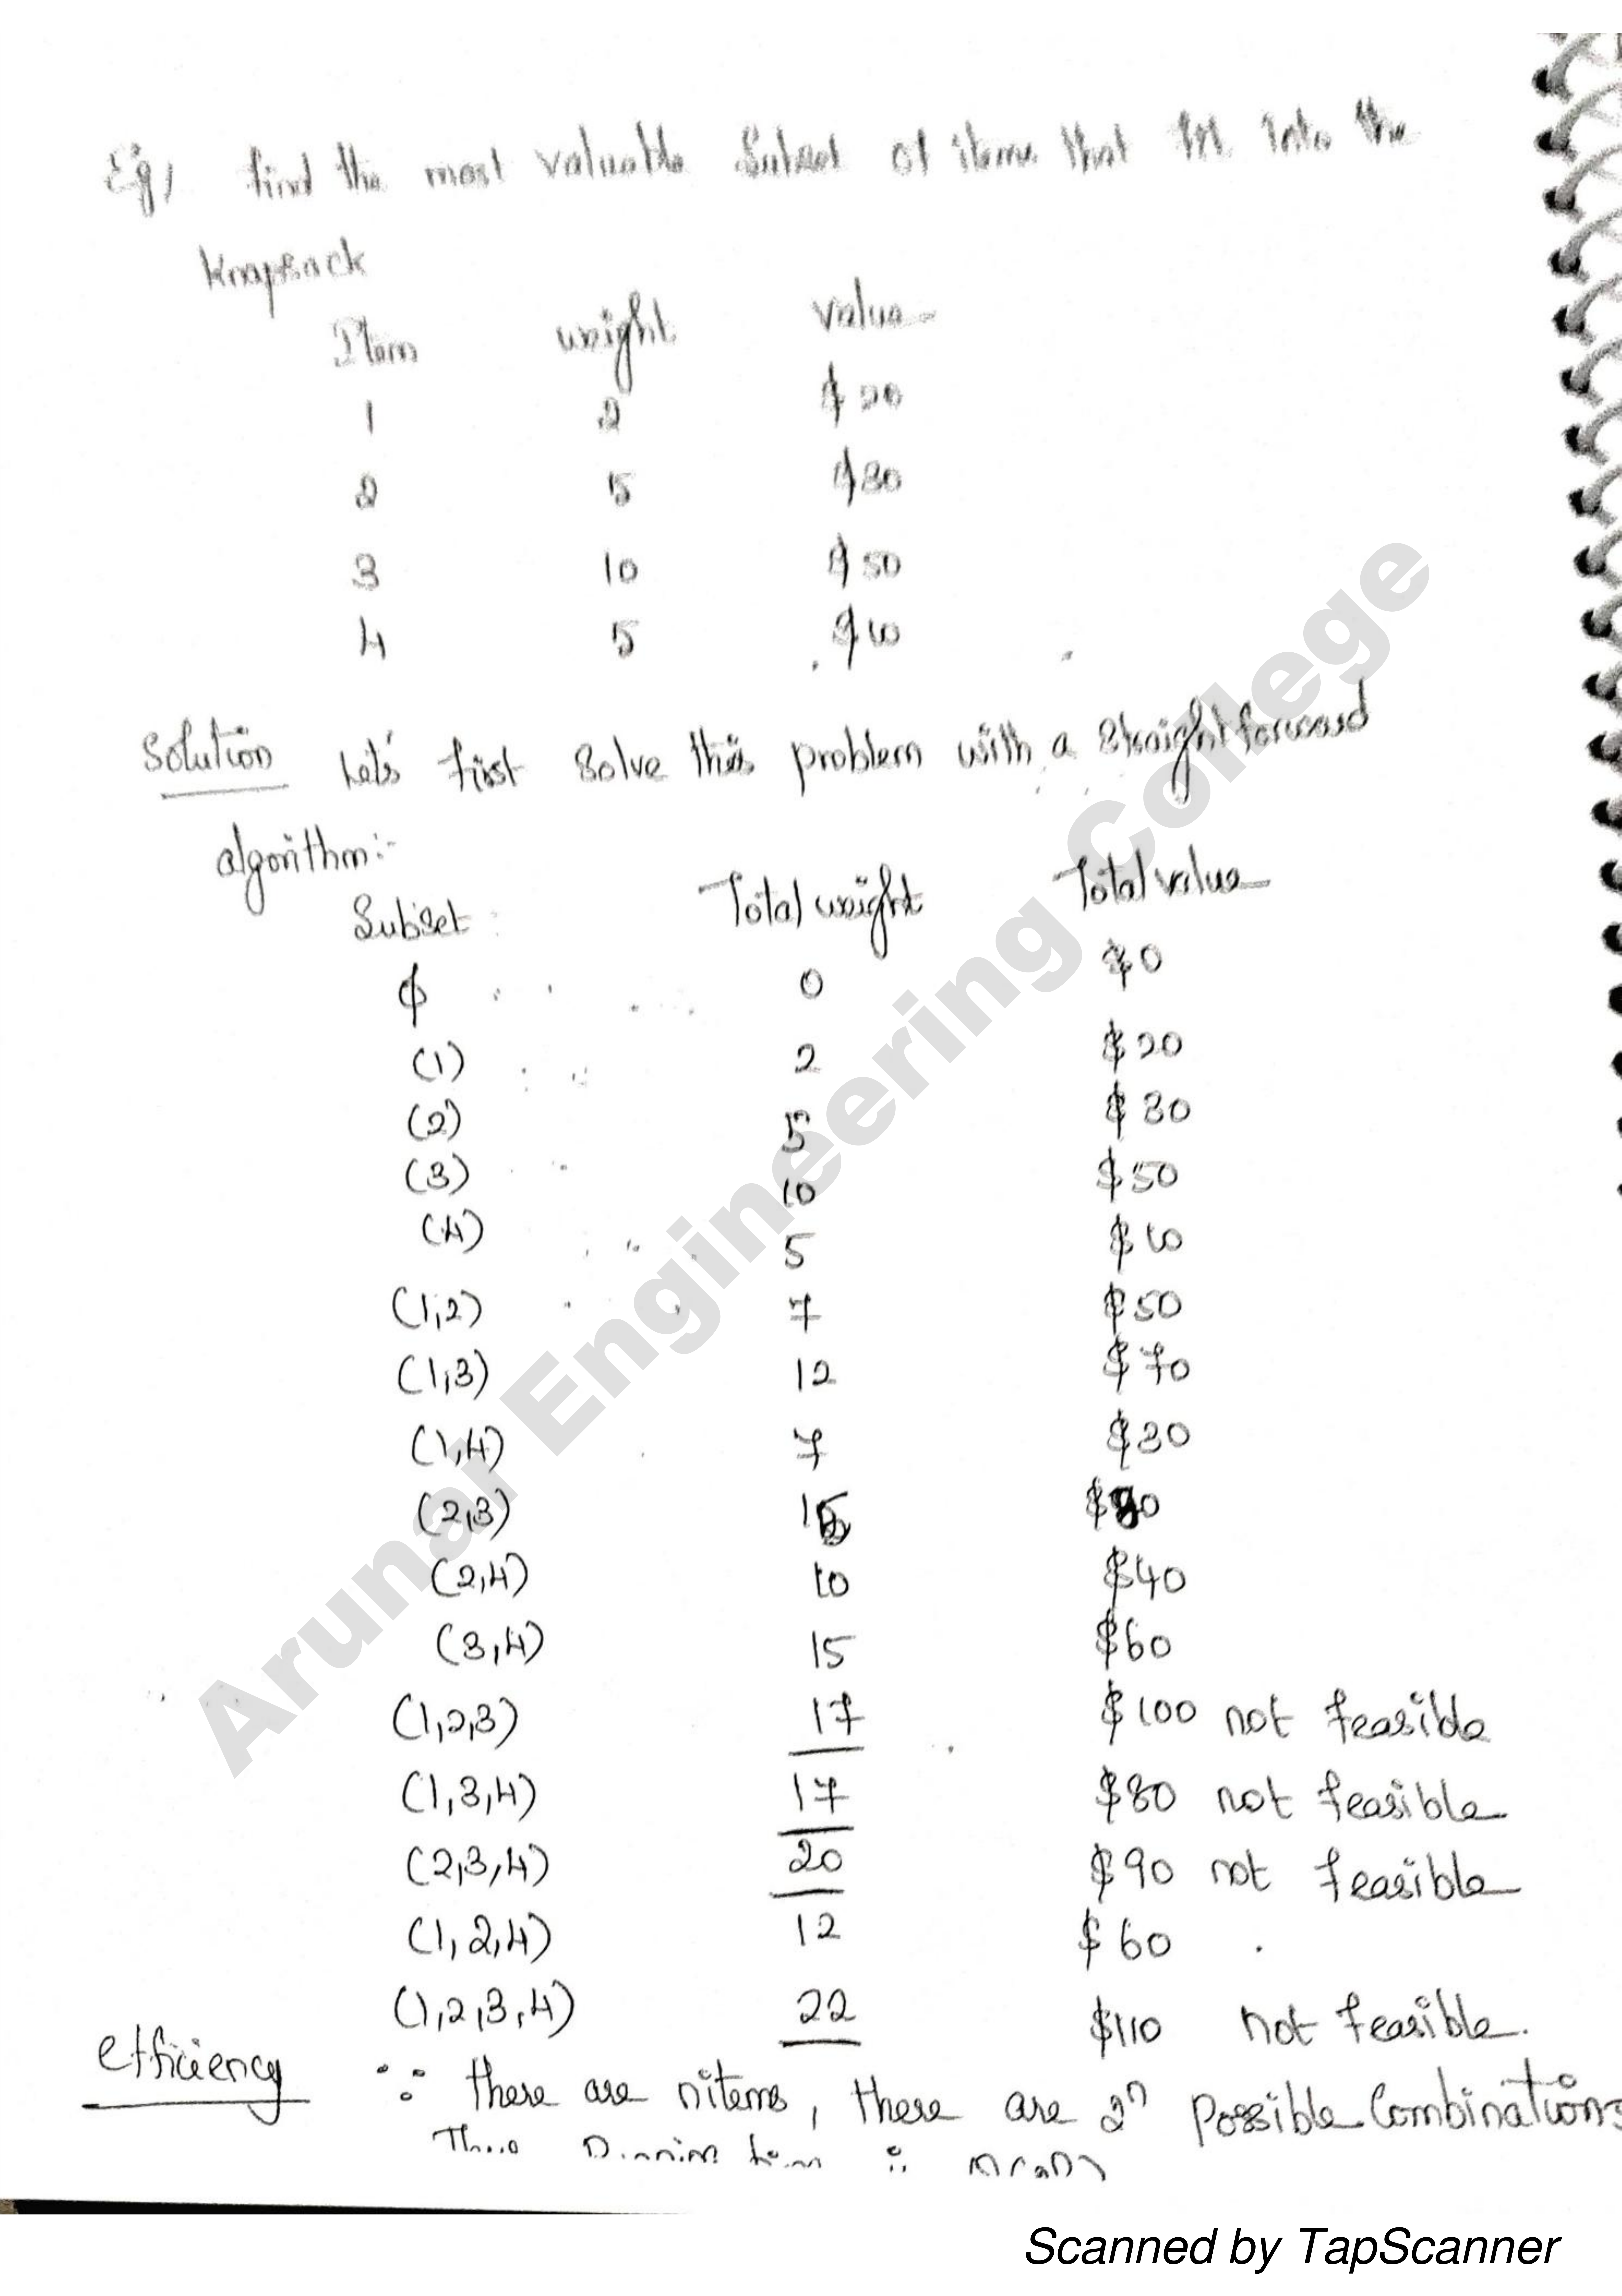 Eg, find the most valuable Subset of items that fit into the
Knapsack
Item weight value
1 2 $20
2 5 $30
3 10 $50
4 5 $10
Solution Let's first Solve this problem with a Straight forward
algorithm:-
Subset Total weight Total value
ϕ 0 $0
(1) 2 $20
(2) 5 $30
(3) 10 $50
(4) 5 $10
(1,2) 7 $50
(1,3) 12 $70
(1,4) 7 $30
(2,3) 15 $80
(2,4) 10 $40
(3,4) 15 $60
(1,2,3) 17 $100 not feasible
(1,3,4) 17 $80 not feasible
(2,3,4) 20 $90 not feasible
(1,2,4) 12 $60
(1,2,3,4) 22 $110 not feasible.
efficiency ∵ there are n items, there are 2ⁿ possible Combinations
Arunai Engineering College
Scanned by TapScanner